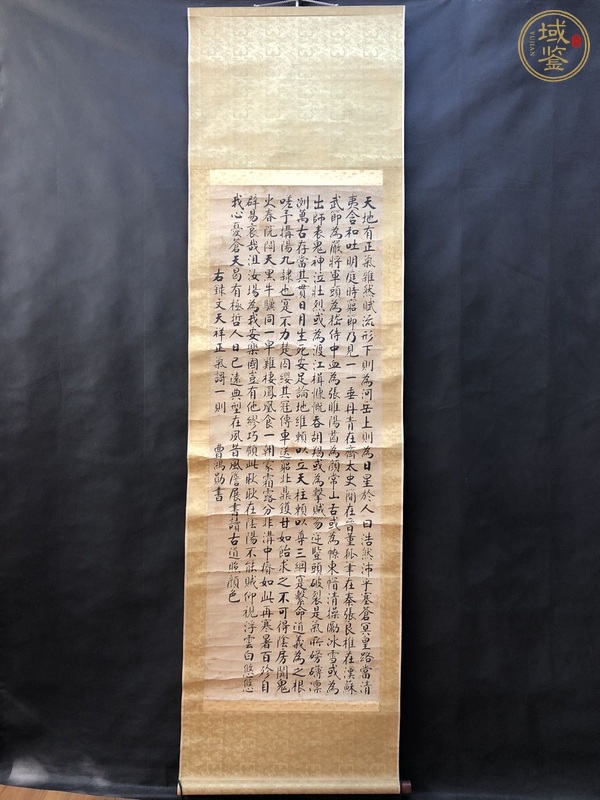 天地有正氣雜然賦流形下則為河岳上則為日星於人曰浩然沛乎塞蒼冥皇路當清
夷含和吐明庭時窮節乃見一一垂丹青在齊太史簡在晉董狐筆在秦張良椎在漢蘇
武節為嚴將軍頭為嵇侍中血為張睢陽齒為顏常山舌或為遼東帽清操厲冰雪或為
出師表鬼神泣壯烈或為渡江楫慷慨吞胡羯或為擊賊笏逆豎頭破裂是氣所磅礴凜
冽萬古存當其貫日月生死安足論地維賴以立天柱賴以尊三綱寔繫命道義為之根
嗟予遘陽九隸也寔不力楚囚纓其冠傳車送窮北鼎鑊甘如飴求之不可得陰房闃鬼
火春院閟天黑牛驥同一皁雞棲鳳凰食一朝蒙霜露分作溝中瘠如此再寒暑百沴自
辟易哀哉沮洳場為我安樂國豈有他繆巧顧此耿耿在陰陽不能賊仰視浮雲白悠悠
我心憂蒼天曷有極哲人日已遠典型在夙昔風簷展書讀古道照顏色
右錄文天祥正氣謌一則 曹鴻勛書
域鉴
YUJIAN